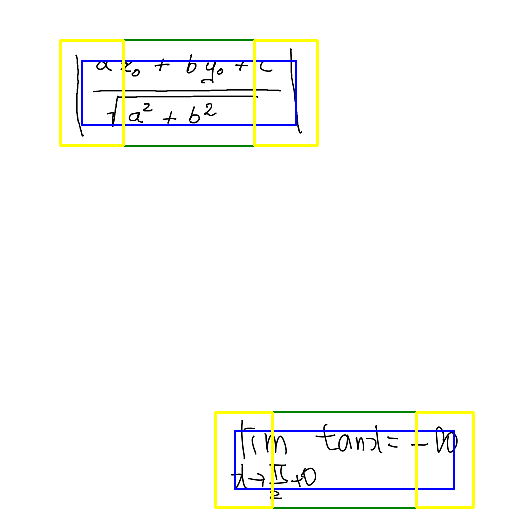 \left| \frac{a x_0 + b y_0 + c}{\sqrt{a^2 + b^2}} \right|
\lim_{x \to \frac{\pi}{2} + 0} \tan x = -\infty